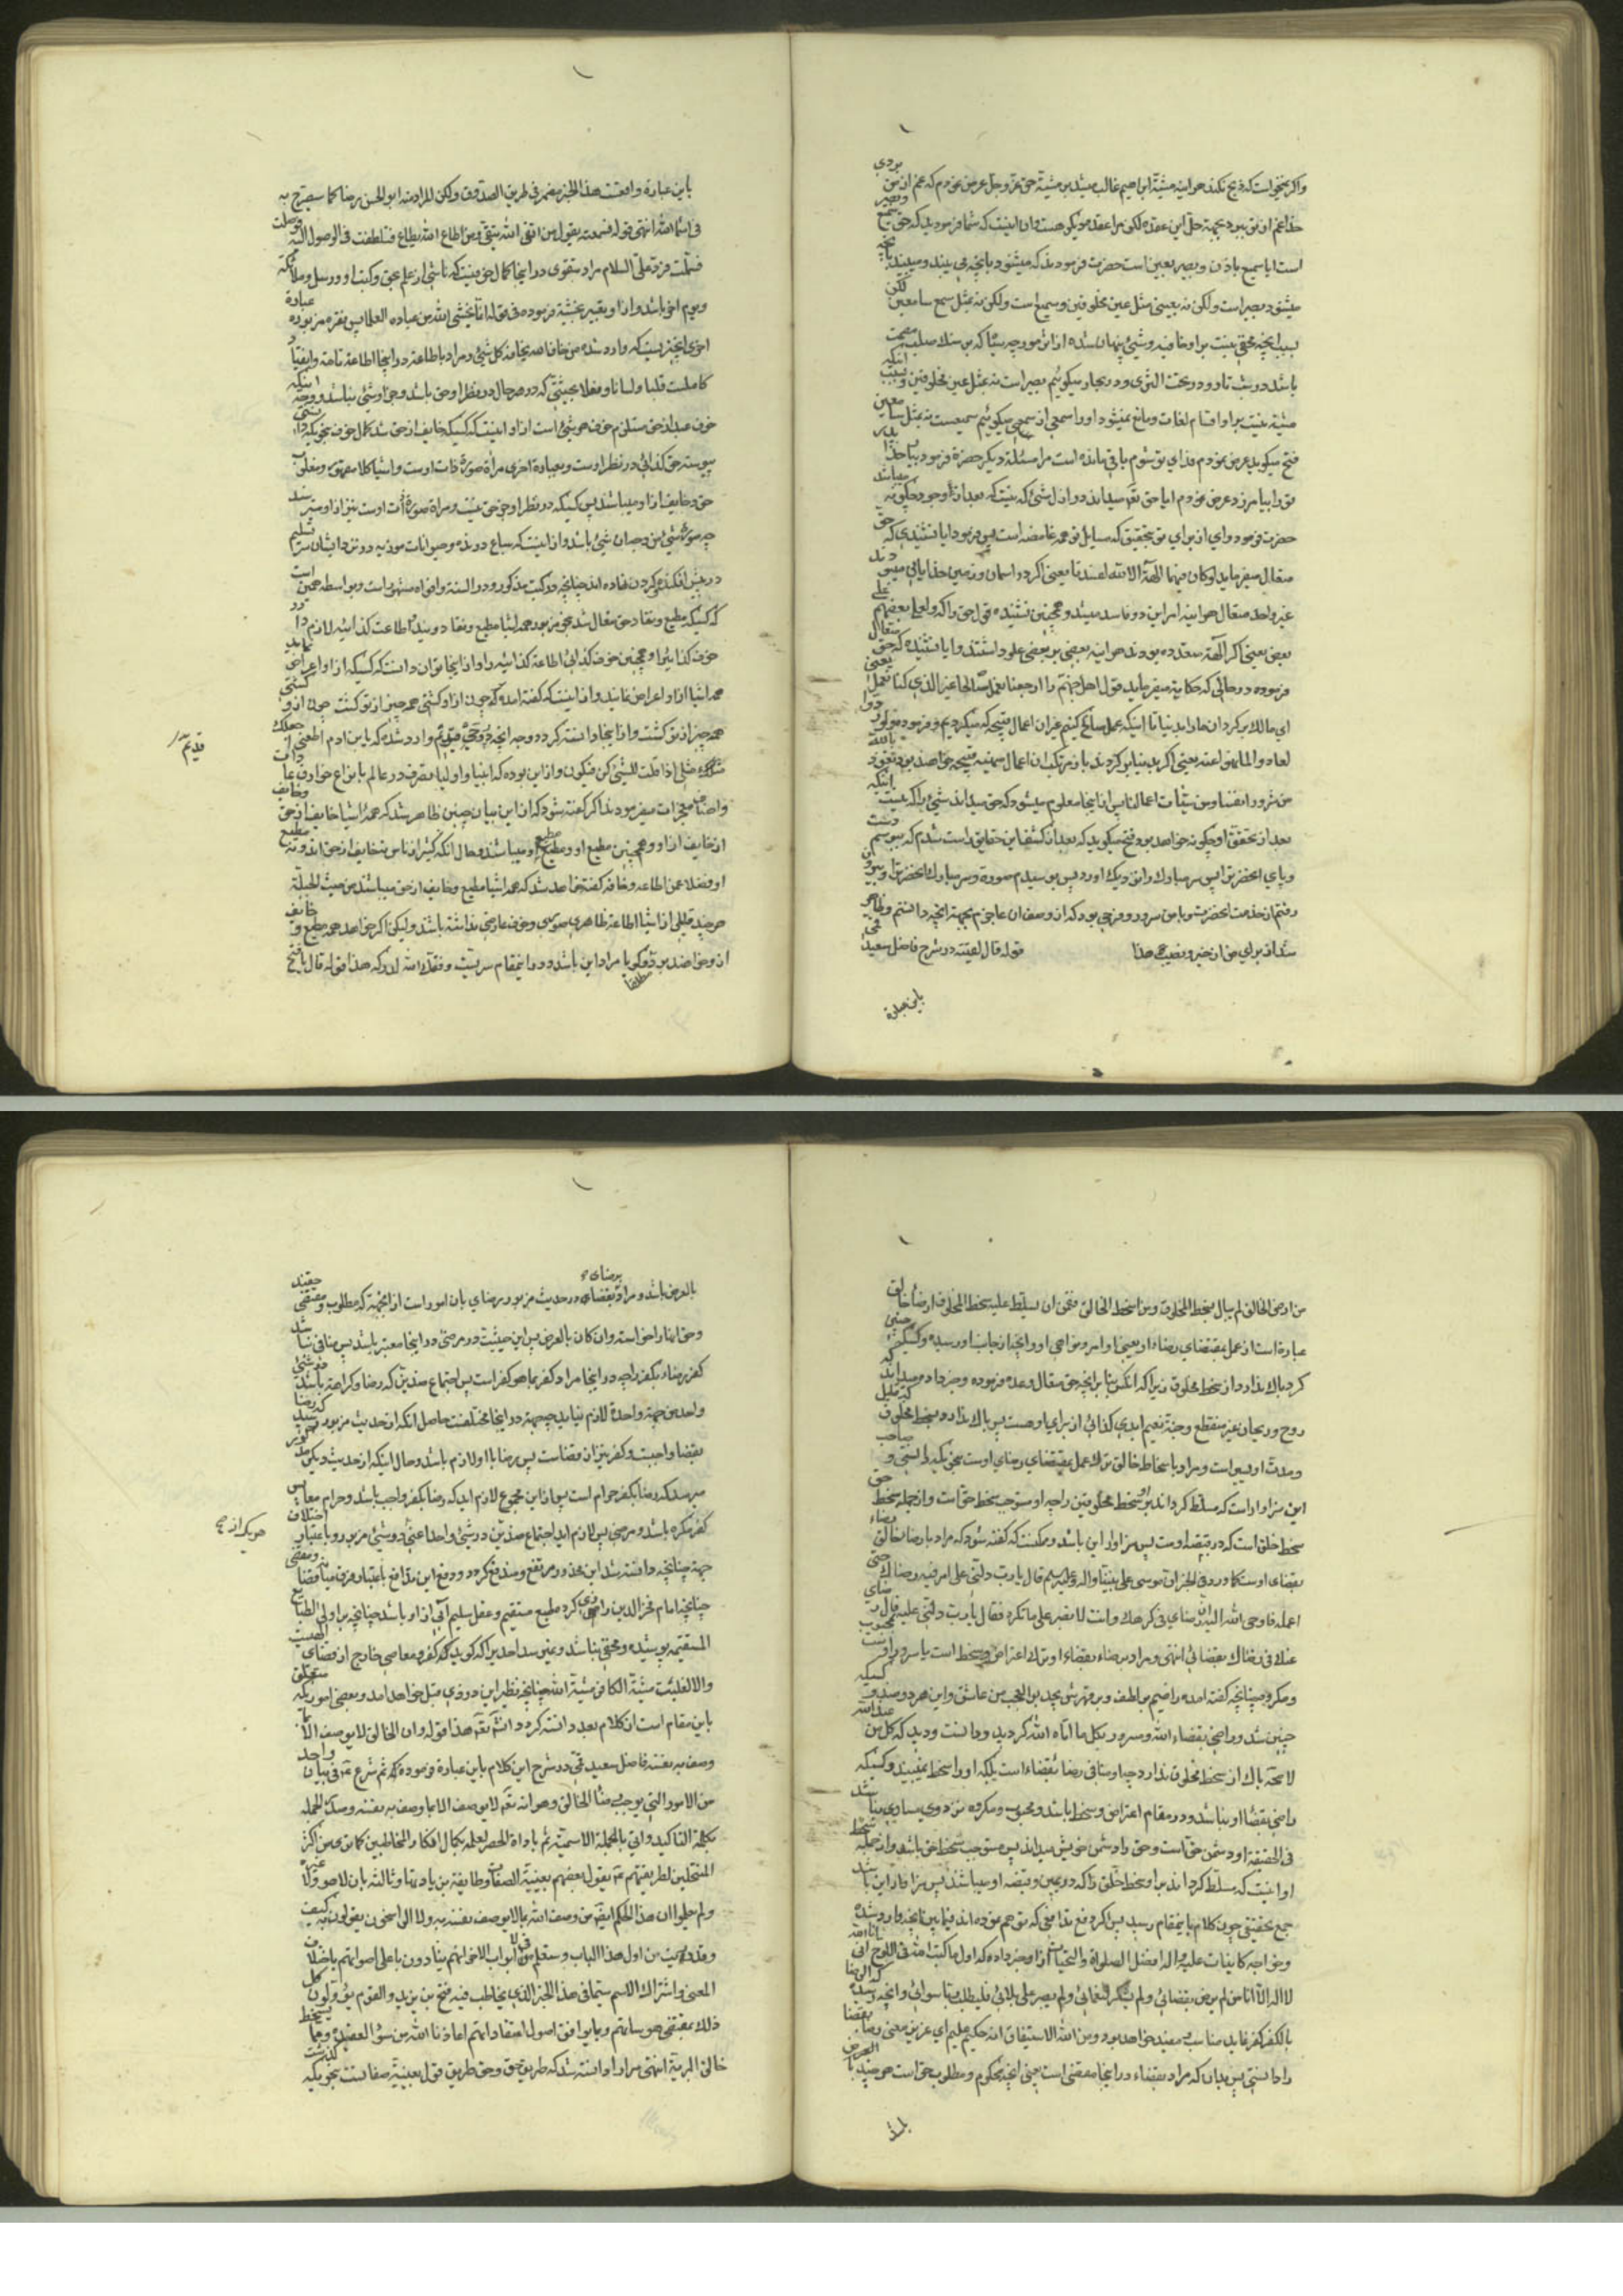 واکر نمیخواست که ذبح نکند هراینه مشیّة ابراهیم غالب میشد بر مشیّة حق عزّ و جلّ عرض نمودم که غم از من بردی
خدا غم از تو ببرد بجهة حل این عقده لکن مرا عقده دیگر هست و ان اینست که شما فرمودید که حق سمیع و بصیر
است ایا سمیع باذن و بصیر بعین است حضرت فرمودند که میشنود بانچه می بیند و میبیند بانچه
میشنود بصیر است ولکن نه بعینی مثل عین مخلوقین و سمیع است ولکن نه بمثل سمع سامعین لکن
بسبب انچه مخفی نیست بر او خافیه و شیئ پنهان شده از اثر مورچه سیاه که بر سنک صلب
باشد در شب تار و در تحت الثری و در بحار میکوئیم بصیر است نه بمثل عین مخلوقین و بسبب اینکه
مشتبه نیست بر او اقسام لغات و مانع نمیشود او را سمعی از سمعی میکوئیم سمیعست نه بمثل سامعین
فتح میکوید عرض نمودم فدای تو شوم باقی مانده است مرا مسئلهٔ دیکر حضرة فرمود بیا خدا پدر
تو را بیامرزد عرض نمودم ایا حق تعه میداند در ازل شیئ که نیست که بعد از وجود چکونه میباشد
حضرت فرمود وای از برای تو بتحقیق که مسایل تو همه غامضه است پس فرمود ایا نشنیدی که حق
متعال میفرماید لو کان فیهما الهة الا الله لفسدتا یعنی اکر در اسمان و زمین خدایانی میبودند
غیر واحد متعال هراینه امر این دو فاسد میشد و همچنین نشنیده قول حق را که ولعلا بعضهم علی
بعض یعنی اکر الهة متعدده بودند هراینه بعضی بر بعضی علو داشتند و ایا نشنیده که حق متعال
فرموده در حالتی که حکایة میفرماید قول اهل جهنم را ارجعنا نعمل صالحا غیر الذی کنا نعمل یعنی
ای مالک برکردان ما را بدنیا تا اینکه عمل صالح کنیم غیر ان اعمال قبیحه که میکردیم و فرمود و لو ردوا
لعادوا لما نهوا عنه یعنی اکر بدنیا برکردند باز مرتکب ان اعمال سیئه قبیحه خواهند بود نعوذ بالله
من شرور انفسنا و من سیئات اعمالنا پس از اینجا معلوم میشود که حق میداند شیئ را که نیست اینکه
بعد از تحقق او چکونه خواهد بود فتح میکوید که بعد از کشف این حقایق راست شدم که ببوسم دست
و پای انحضرت را پس سر مبارک را نزدیک اورد پس بوسیدم صورة و سر مبارک انحضرت را و بیرون
رفتم از خدمت انحضرت و با من سرور و فرحی بود که از وصف ان عاجزم بجهة انچه دانستم و ظاهر
شد از برای من از خیر و نصیب هذا قوله قال لقیته در شرح فاضل سعید قمی
باین عبارة
باین عبارة واقعست هذا الخبر مضمر فی طریق الصدوق ولکن المراد منه ابو الحسن رضا کما سیصرّح به
فی اثناء انتهی قوله فسمعته یقول من اتقی الله یتقی و من اطاع الله یطاع فتلطفت فی الوصول الیه فوصلت
فسلّمت فردّ علیّ السلام مراد بتقوی در اینجا کمال خوفیست که ناشی از علم بحق و کتب او و رسل و ملائکه
و یوم اخر باشد و از او تعبیر بخشیة فرموده در قوله انما یخشی الله من عباده العلما پس فقره مزبوره عبارة
اخری انچیزیست که وارد شده من خاف الله یخاف منه کل شیئ و مراد باطاعة در اینجا اطاعة تامة و انقیاد
کاملست قلبا و لسانا و فعلا بحیثیتی که در هر حال در نظر او حق باشد و جز او شیئ نباشد و وجه اینکه
خوف عبد از حق مستلزم خوف هر شیئ است از او اینست که کسیکه خایف از حق شد کمال خوف بنحویکه
پیوسته حق کذائی در نظر اوست و بعبارة اخری مرأة صورة ذات اوست و اشیا کلا مقهور و مغلوب
حق و خایف از او میباشند پس کسیکه در نظر او جز حق نیست و مراة صورة ذات اوست نیز از او میترسند
چه صورة شیئ من وجه ان شیئ باشد و از اینست که سباع درنده و حیوانات موذیه در نزد ایشان سر تسلیم
در پیش افکنده کردن نهاده اند چنانچه در کتب مذکور و در السنه و افواه مشهور است و بواسطه همین است
که کسیکه مطیع و منقاد حق متعال شد بنحو مزبور همه اشیا مطیع و منقاد او میشوند
خوف کذا میرا و همچنین خوف کذائی اطاعة کذائیه را و از اینجا توان دانست که کسیکه از او اعراض نماید
همه اشیا از او اعراض نمایند و از اینست که کفته اند که چون از او کشتی همه چیز از تو کشت چون از او کشتی
همه چیز از تو کشت و از اینجا دانسته کردد وجه انچه در حدیث قدسی وارد شده که یا بن ادم اطعنی اجعلک
مثلی اذا قلت للشیئ کن فیکون و از این بوده که انبیا و اولیا تصرف در عالم بانواع خوارق عادات
واصناف معجزات میفرمودند اکر کفته شود که از این بیان چنین ظاهر شد که همه اشیا خایف از حق و خایف
از خایف از او و همچنین مطیع او و مطیع مطیع او میباشند و حال انکه کثیر از ناس نه خایف از حق اند و نه مطیع
او فضلا عن اطاعه و خافه کفته خواهد شد که همه اشیا مطیع و خایف از حق میباشند من حیث الجبلّة
هر چند قلیلی از اشیا اطاعة ظاهری صوری و خوف عارضی نداشته باشند ولیکن اکر خواهد همه مطیع و خایف
از و خواهند بود و کویا مراد این باشد و در اینمقام سریست وفقک الله لدرکه هذا قوله قال یا فتح
قدیم
من ارضی الخالق لم یبال بسخط المخلوق و من اسخط الخالق فقمن ان یسلّط علیه سخط المخلوق ارضاء خالق
عبارة است از عمل بمقتضای رضاء او یعنی اوامر و نواهی او و انچه از جانب او رسیده و کسیکه چنین
کرد باک ندارد از سخط مخلوق زیرا که انکس بنا بر انچه حق متعال وعده فرموده و خبر داده و میداند که
روح و ریحان غیر منقطع و جنّة نعیم ابدی کذائی از برای او هست پس باک ندارد بسخط مخلوق که قلیل
و مدت او یسیر است و مراد باسخاط خالق ترک عمل بمقتضای رضای اوست بنحویکه دانستی و صاحب
این سزاوار است که مسلّط کرداند بر او سخط مخلوقین را چه او مستوجب سخط حق است و از جمله سخط حق
سخط خلق است که در قبضهٔ اوست پس سزاوار این باشد و ممکنست که کفته شود که مراد بارضاء خالق رضاء
بقضای اوست کما ورد فی الخبر ان موسی علی نبینا واله وعلیه السلم قال یا رب دلّنی علی امر فیه رضاک حتی
اعمله فاوحی الله الیه ان رضای فی کرهک وانت لا تصبر علی ما تکره فقال یا رب دلّنی علیه قال رضای
عنک فی رضاک بقضائی انتهی و مراد برضاء بقضاء او ترک اعتراض و سخط است یا سرور او بمحبوب
و مکروه چنانچه کفته امده راضیم بر لطف و بر قهرش بجد بو العجب من عاشق و این هر دو ضد و کسیکه
چنین شد و راضی بقضاء الله و مسرور بکل ما اتاه الله کردید و دانست و دید که کل من عند الله
لا محة باک از سخط مخلوق ندارد چه او منافی رضا بقضاء است بلکه او را سخط نمیبیند و کسیکه
راضی بقضا او نباشد و در مقام اعتراض و سخط باشد و محبوب و مکروه نزد وی مساوی نباشد
فی الحقیقه او دشمن حق است و حق را دشمن خویش میداند پس مستوجب سخط حق باشد و از جمله سخط
او اینست که مسلّط کرداند بر او سخط خلق را که در یمین و قبضه او میباشند پس سزاوار این باشد
جمع تحقیقی چون کلام باینمقام رسید پس اکر دفع تدافعی که توهم نموده اند فیما بین انچه وارد شده
و خواجه کاینات علیه واله افضل الصلواة والتحیات از او خبر داده که اول ما کتب الله فی اللوح انی انا الله
لا اله الا انا من لم یرض بقضائی ولم یشکر لنعمائی ولم یصبر علی بلائی فلیطلب ربا سوائی و انچه رسیده که الرضا
بالکفر کفر نماید مناسب و مفید خواهد بود و من الله الاستیفاق انه حکیم علیم ای عزیز معنی رضا بقضا
را دانستی پس بدان که مراد بقضاء در اینجا مقضی است یعنی انچه محکوم و مطلوب حق است هر چند بالعرض
باشد
بالعرض باشد و مراد بقضای در حدیث مزبور رضای بان امور است از انجهة که مطلوب و مقضی حقیند
برضای
و حق انها را خواسته و ان کان بالعرض پس این حیثیت در مرضی در اینجا معتبر باشد پس منافی نباشد
کفر برضاء بکفر را چه در اینجا مراد کفر بما هو کفر است پس اجتماع ضدین که رضا و کراهة باشد در شیئ
واحد من جهة واحدة لازم نیاید چه جهة در اینجا مختلفست حاصل انکه از حدیث مزبور رسید که رضا
بقضا واجبست و کفر نیز از قضاست پس رضا با او لازم باشد و حال اینکه از حدیث دیکر
میرسد که رضا بکفر حرام است پس از این مجموع لازم اید که رضا بکفر واجب باشد و حرام معا پس
کفر مکره باشد و مرضی پس لازم اید اجتماع ضدین در شیئ واحد اعنی دو شیئ مزبور و باعتبار اختلاف
جهة چنانچه دانسته شد این محذور مرتفع و مندفع کردد و دفع این تدافع باعتبار فرق میان قضا و مقضی
چنانچه امام فخر الدین رازی کرد طبع مستقیم و عقل سلیم آبی از او باشد چنانچه بر اولی الطبایع
المستقیمه پوشیده و مخفی نباشد و نمیرسد احدیرا که کوید که کفر و معاصی خارج از قضای الهیست
و الا لغلبت مشیّة الکافر مشیّة الله چنانچه نظیر این در ذی قبل خواهد امد و بعضی اموریکه متعلق
باین مقام است از کلام بعد دانسته کردد انش تعه هذا قوله وان الخالق لا یوصف الا بما
وصف به نفسه فاضل سعید قمّی در شرح این کلام باین عبارة فرموده که ثم شرع عه فی بیان واحد
من الامور التی یوجب رضا الخالق وهو انه تعه لا یوصف الا بما وصف به نفسه وصدّر الجمله
بکلمة التاکید واتی بالجملة الاسمیّة ثم باداة الحصر لعلمه بکمال افکار المخاطبین کما تری من اکثر
المنتحلین لطریقتهم عه یقول بعضهم بعینیّة الصفات وطایفة بزیادتها وثالثة بان لا هو ولا غیره
ولم یعلموا ان هذا الحکم ایضا من وصف الله بما لا یوصف نفسه به ولا الراسخون یقولون به کیف
وقد دریت من اول هذا الباب وستعلم فی الابواب الاخر انهم ینادون باعلی اصواتهم باختلاف
المعنی واشتراک الاسم سیّما فی هذا الخبر الذی یخاطب فیه فتح بن یزید والقوم یؤولون کل
ذلک بمقتضی هوساتهم وبما یوافق اصول اعتقاداتهم اعاذنا الله من سوء العقیده ومما یسخط
خالق البریة انتهی مراد او دانسته شد که طریق حق و حق طریق قول بعینیّة صفاتست بنحویکه کذشت